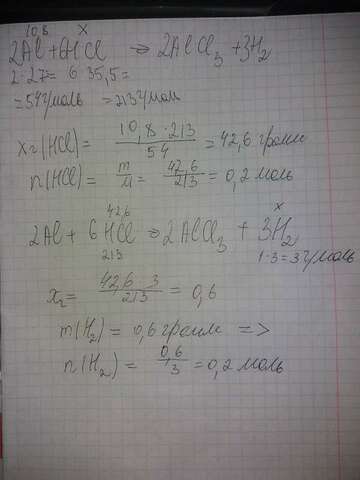 10,8 x
2Al + 6HCl → 2AlCl₃ + 3H₂
2·27= 6·35,5=
=54г/моль =213г/моль
x г (HCl) = 10,8·213 / 54 = 42,6 грамм
n(HCl) = m/M = 42,6/213 = 0,2 моль
42,6 x
2Al + 6HCl → 2AlCl₃ + 3H₂
213 1·3=3г/моль
xг = 42,6·3 / 213 = 0,6
m(H₂) = 0,6 грамм =>
n(H₂) = 0,6/3 = 0,2 моль